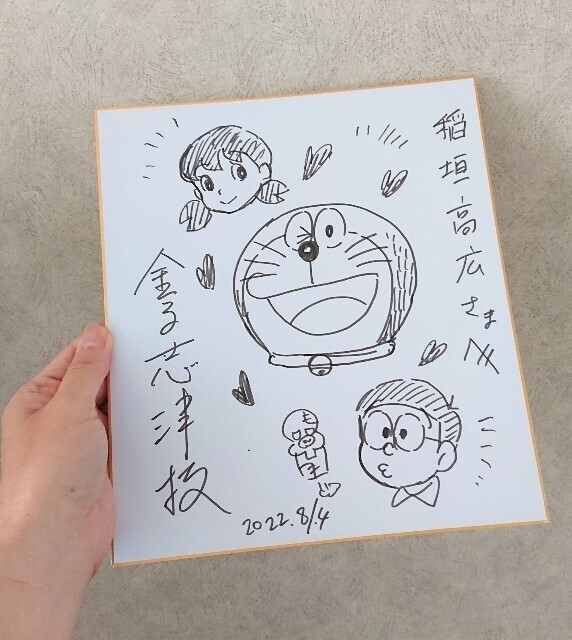 稲垣高広さま
金子志津枝
2022.8/.4